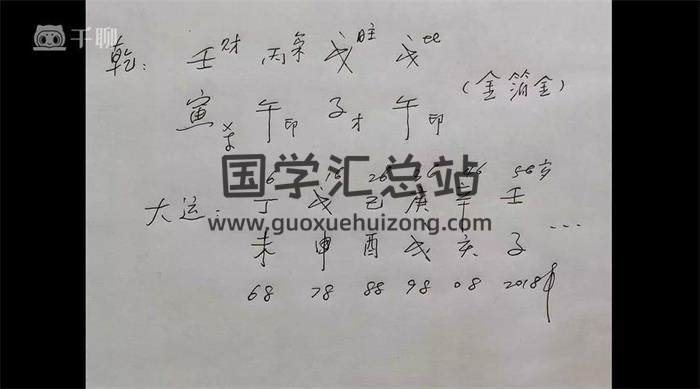 千聊
乾: 壬财 丙枭 戊日主 戊比
(金箔金)
寅杀 午印 子才 午印
国学汇总站
www.guoxuehuizong.com
6 16 26 36 46 56岁
大运: 丁 戊 己 庚 辛 壬
未 申 酉 戌 亥 子 ...
68 78 88 98 08 2018年